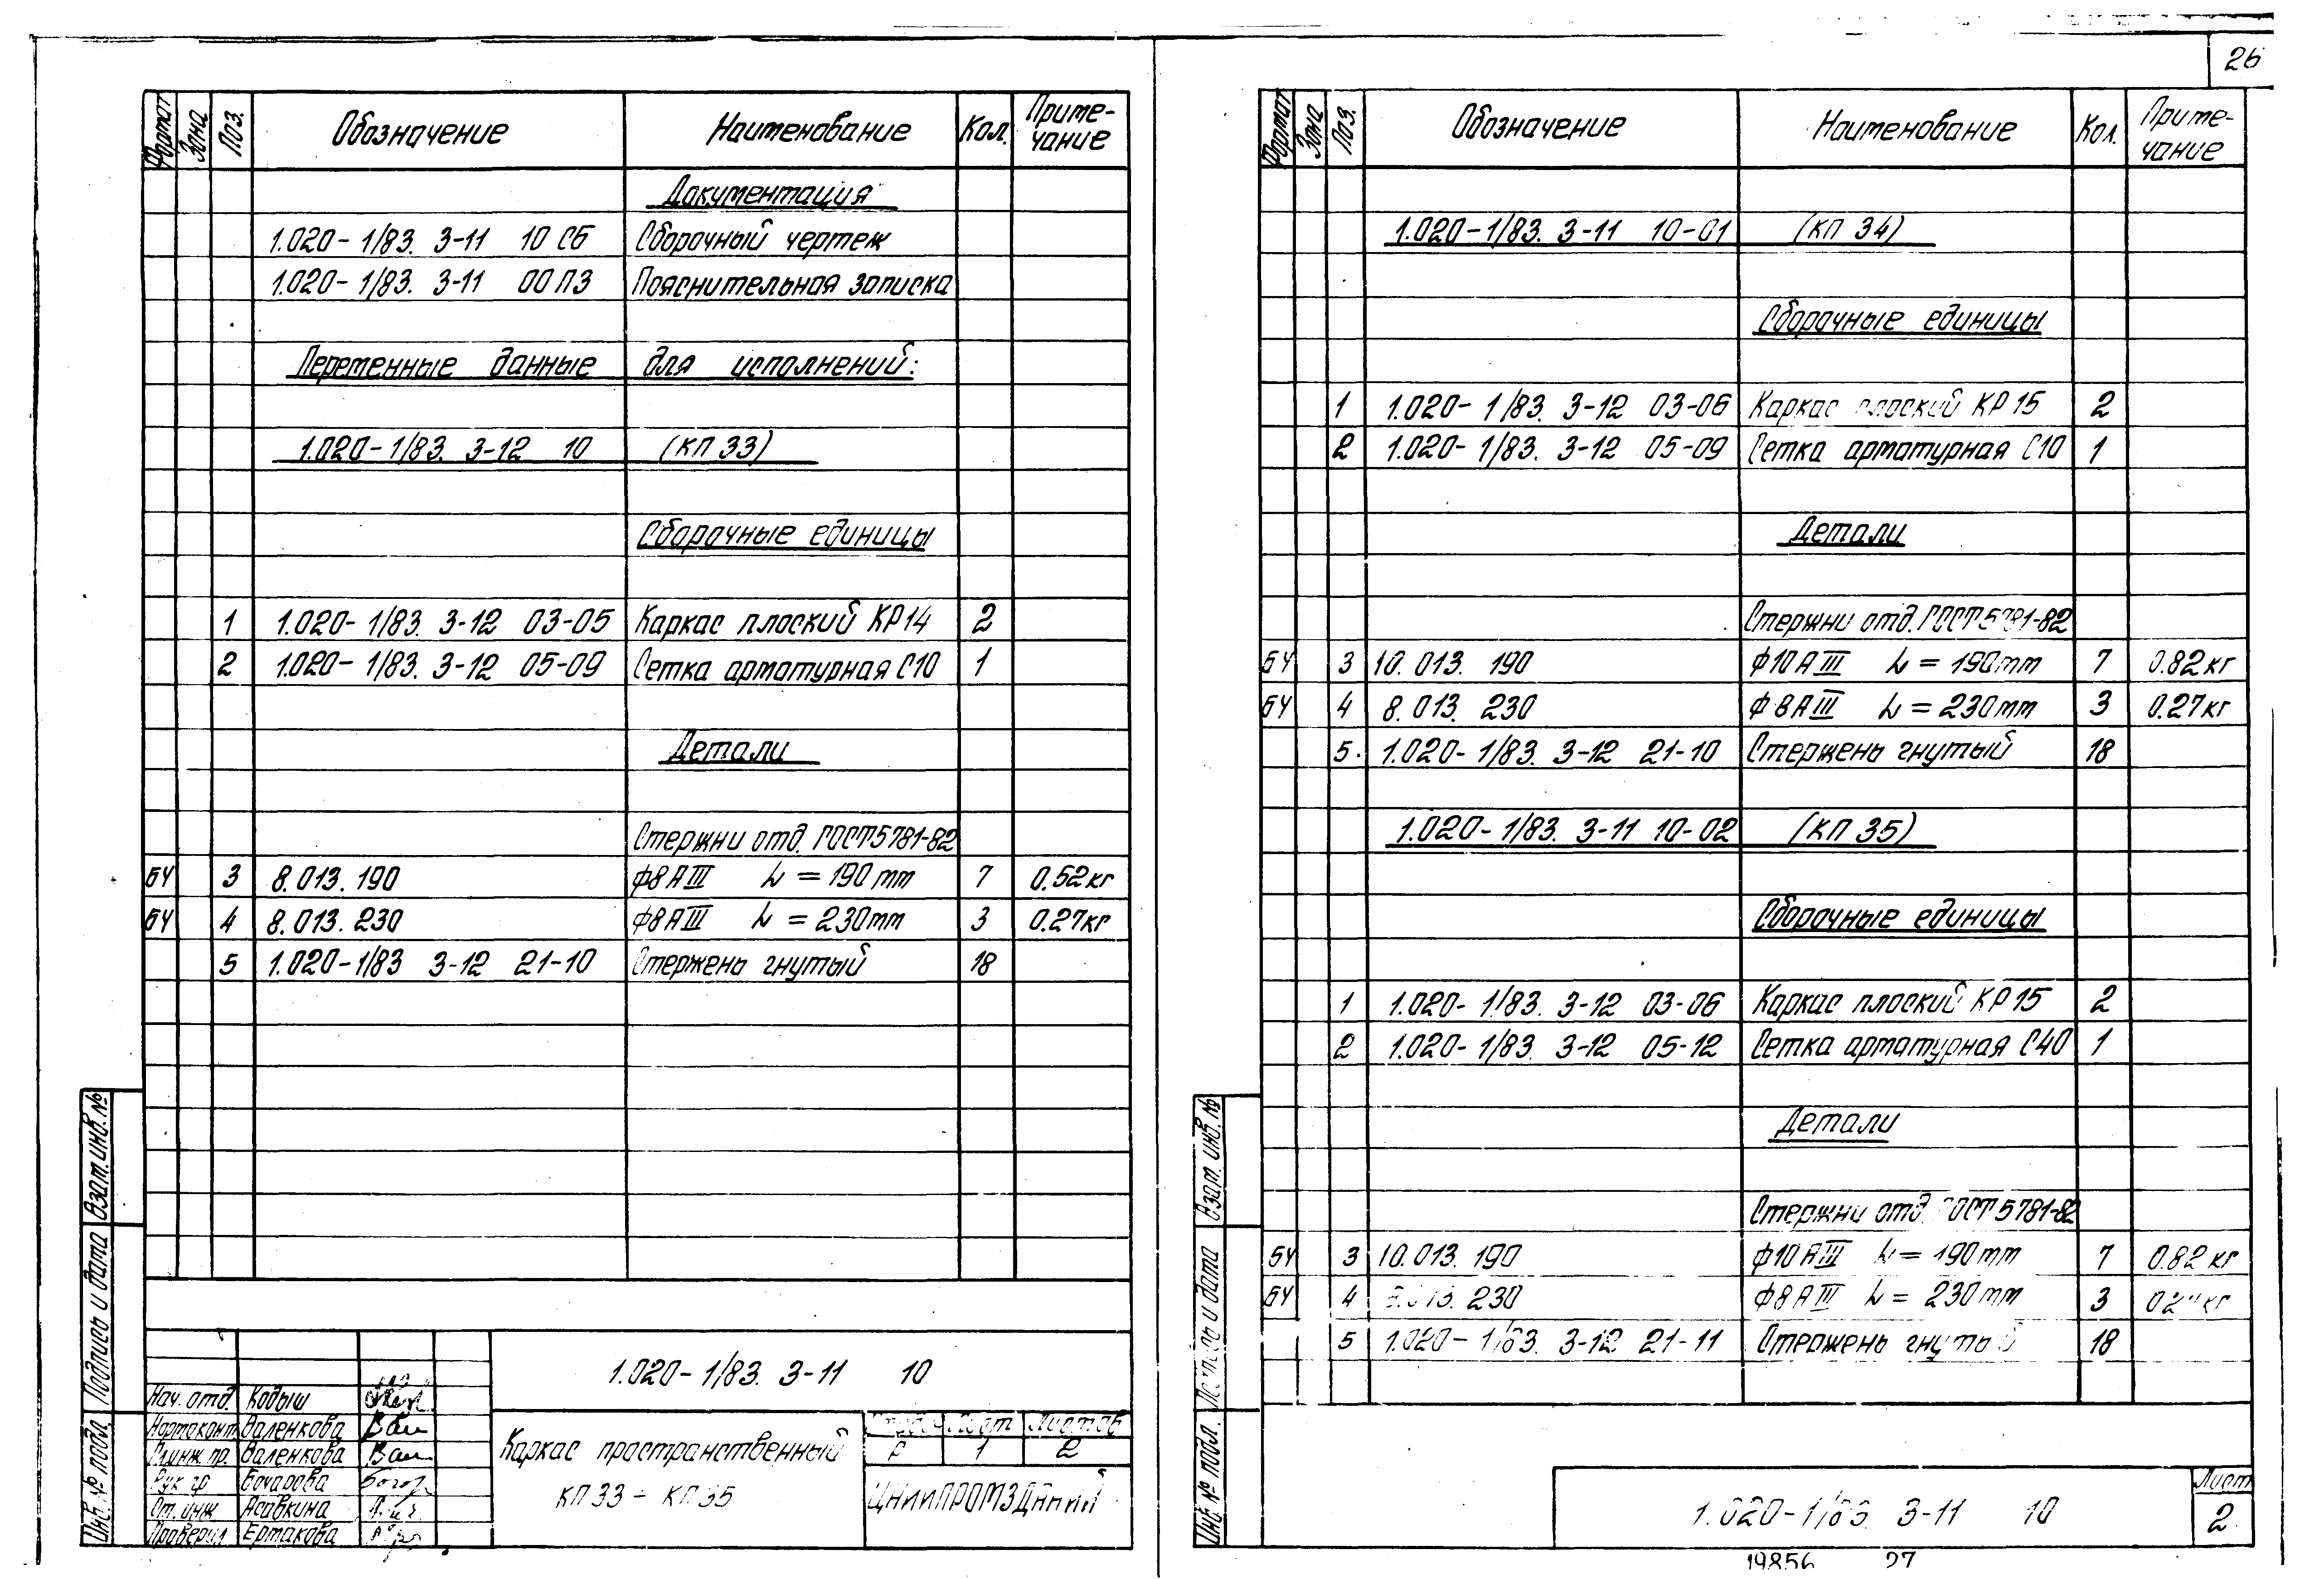 26
Формат Зона Поз. Обозначение Наименование Кол. Приме-
чание
Документация
1.020-1/83. 3-11 10 СБ Сборочный чертеж
1.020-1/83. 3-11 00 ПЗ Пояснительная записка
Переменные данные для исполнений:
1.020-1/83. 3-12 10 (КП 33)
Сборочные единицы
1 1.020-1/83. 3-12 03-05 Каркас плоский КР14 2
2 1.020-1/83. 3-12 05-09 Сетка арматурная С10 1
Детали
Стержни отд. ГОСТ 5781-82
БЧ 3 8.013.190 Ф8АIII L = 190мм 7 0.52кг
БЧ 4 8.013.230 Ф8АIII L = 230мм 3 0.27кг
5 1.020-1/83 3-12 21-10 Стержень гнутый 18
Взам. инв. №
Подпись и дата
Инв. № подл.
1.020-1/83. 3-11 10
Нач. отд. Кодыш
Нормоконт. Валенкова
Гл.инж.пр. Валенкова
Рук. гр Бочарова
Ст. инж Асавкина
Проверил Ермакова
Каркас пространственный
КП33 - КП35
Стадия Лист Листов
Р 1 2
ЦНИИПРОМЗДАНИЙ
Формат Зона Поз. Обозначение Наименование Кол. Приме-
чание
1.020-1/83. 3-11 10-01 (КП 34)
Сборочные единицы
1 1.020-1/83. 3-12 03-06 Каркас плоский КР15 2
2 1.020-1/83. 3-12 05-09 Сетка арматурная С10 1
Детали
Стержни отд. ГОСТ 5781-82
БЧ 3 10.013.190 Ф10АIII L = 190мм 7 0.82кг
БЧ 4 8.013.230 Ф8АIII L = 230мм 3 0.27кг
5 1.020-1/83. 3-12 21-10 Стержень гнутый 18
1.020-1/83. 3-11 10-02 (КП 35)
Сборочные единицы
1 1.020-1/83. 3-12 03-06 Каркас плоский КР15 2
2 1.020-1/83. 3-12 05-12 Сетка арматурная С40 1
Детали
Стержни отд. ГОСТ 5781-82
БЧ 3 10.013.190 Ф10АIII L = 190мм 7 0.82кг
БЧ 4 8.013.230 Ф8АIII L = 230мм 3 0.27кг
5 1.020-1/83. 3-12 21-11 Стержень гнутый 18
Взам. инв. №
Подпись и дата
Инв. № подл.
1.020-1/83. 3-11 10
Лист
2
19856 27